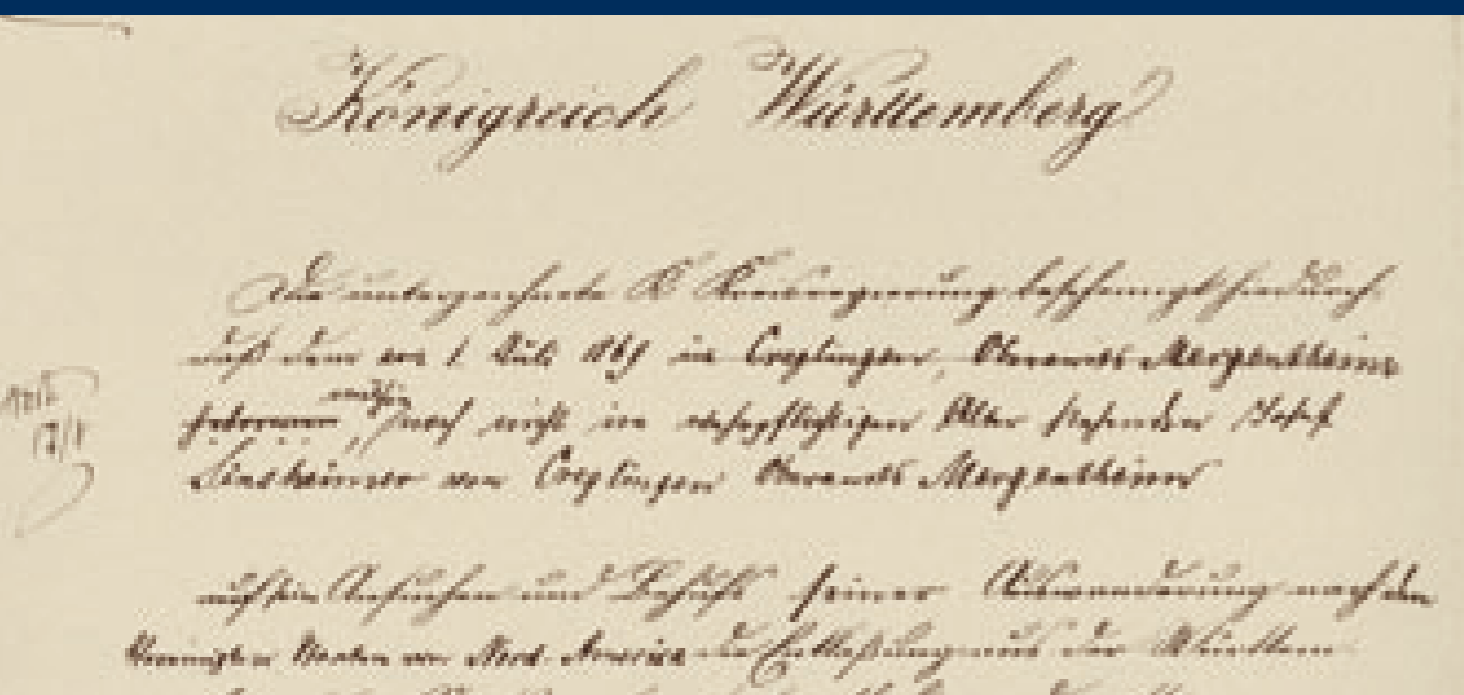 Königreich Württemberg
Die unterzeichnete K. Kreisregierung bescheinigt hiedurch
daß dem am 1. Juli in Creglingen, Oberamts Mergentheim
geborenen, mithin noch nicht im wehrpflichtigen Alter stehenden Josef
von Creglingen Oberamts Mergentheim
auf sein Ansuchen und Behufs seiner Auswanderung nach den
Vereinigten Staaten von Nord-America die Entlassung aus der Württem